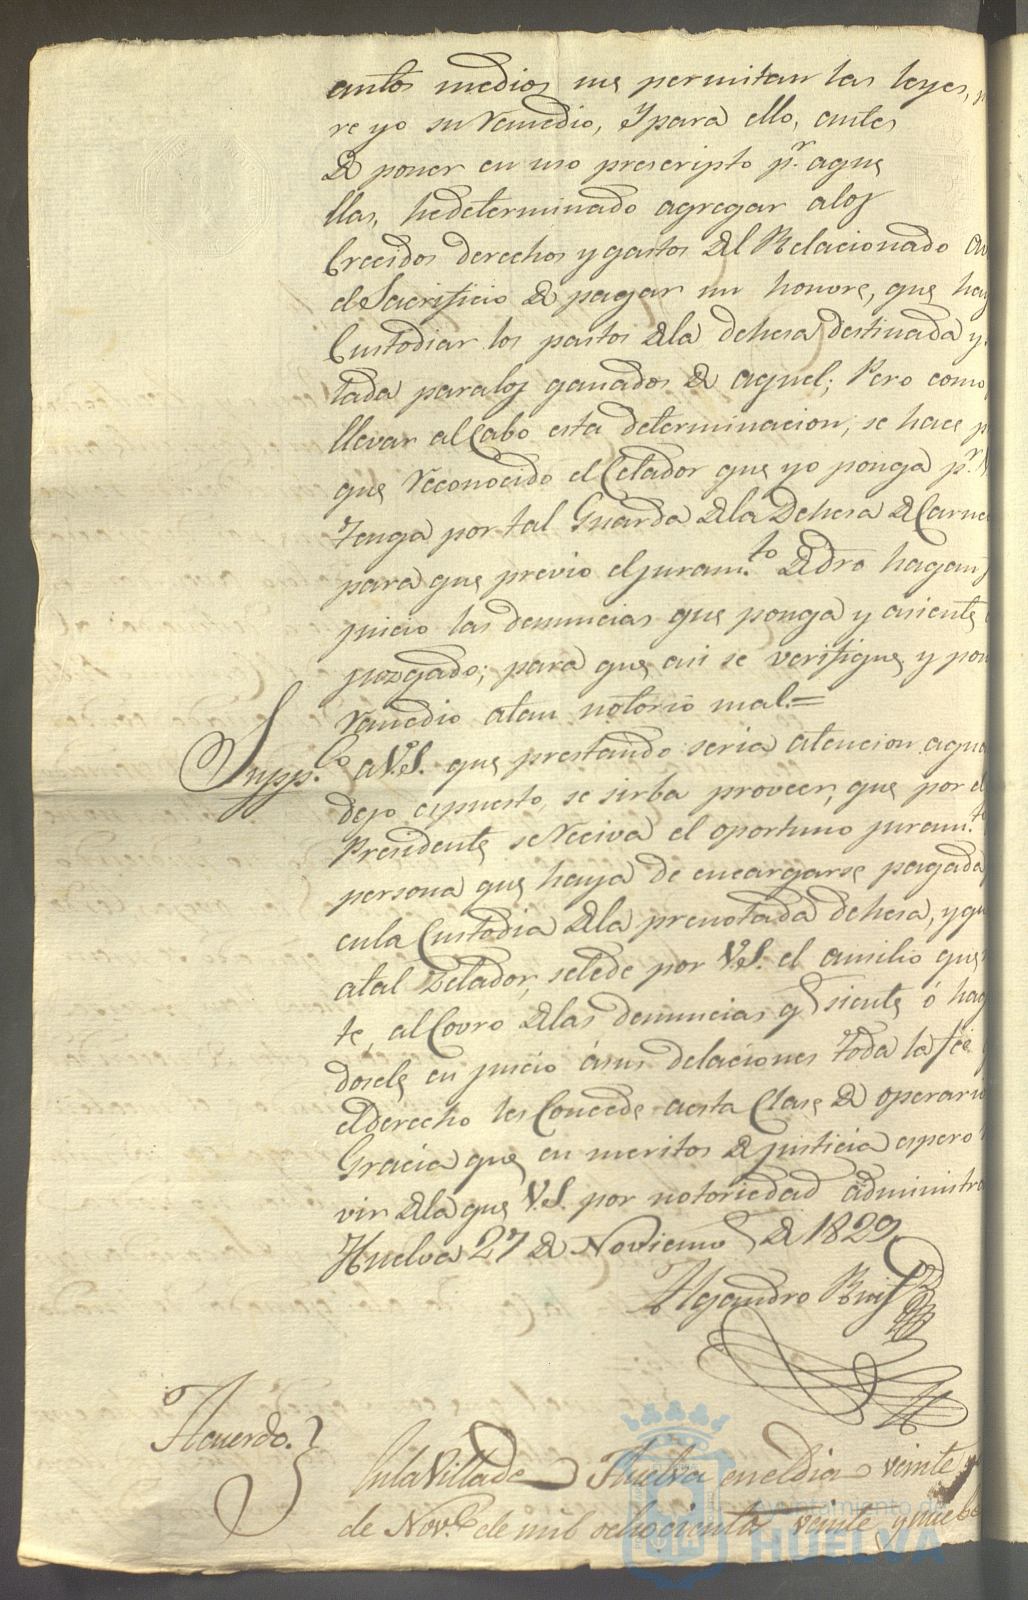 antos medios me permitan las leyes,
re yo su remedio, Y para ello, antes
de poner en uso prescripto pr. aque
llas, hedeterminado agregar alos
Crecidos derechos y gastos del Relacionado
el Sacrificio de pagar un honvre, que hay
Custodiar los pastos dela dehesa destinada y
tada paralos ganados de aquel; Pero como
llevar al Cabo esta determinacion, se hace p
que reconocido el Celador que yo ponga pr.
Tenga por tal Guarda dela Dehesa de Carne
para que previo el juram.to de dro hagan
juicio las denuncias que ponga y asiente
juzgado; para que asi se verifique, y pon
remedio atan notorio mal.=
Supp.co a V.S. que prestando seria atencion aque
dejo espuesto, se sirba proveer, que por el
Presidente se reciva el oportuno juram.to
persona que haya de encargarse pagada
enla Custodia dela prenotada dehesa, y qu
atal Zelador, selede por V.S. el ausilio que
te, al Covro delas denuncias q siente ó hag
dosele en juicio ásus delaciones toda la fée
el derecho les Concede aesta Clase de operario
Gracia que en meritos de justicia espero
vir dela que V.S. por notoriedad administra
Huelva 27 de Noviemb de 1829
Alejandro Ruiz
Acuerdo.
En la Villa de Huelva en el dia veinte y
de Nov.e de mil ochocientos veinte y nuebe
Ayuntamiento de
HUELVA